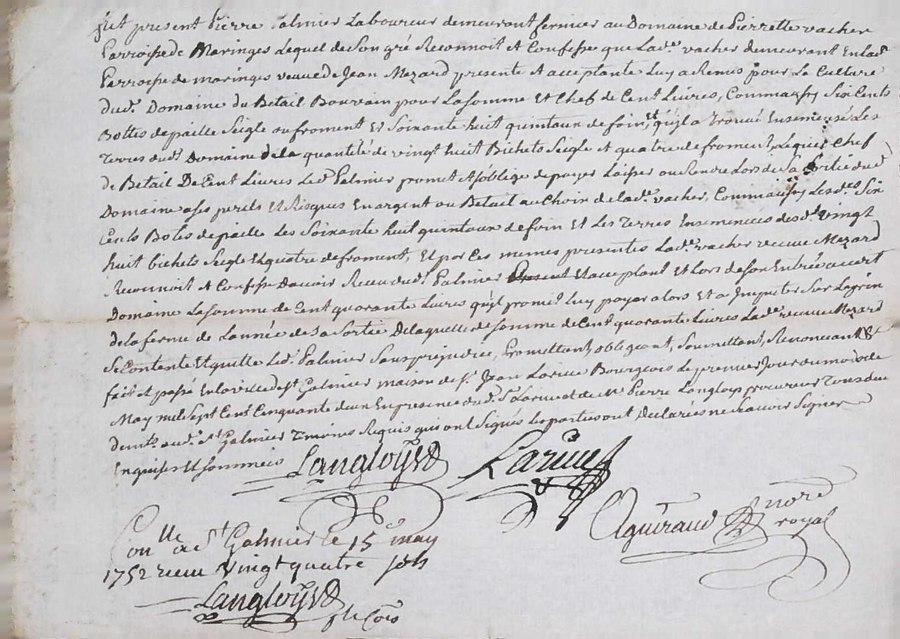 fut present Pierre Palmier Laboureur demeurant fermier au Domaine de Pierrette vacher
Parroisse de Maringes Lequel de Son gré Reconnoit et Confesse que Lade. vacher demeurant En lad.
Parroisse de maringes veuve de Jean Mezard presente et acceptante Luy a Remis pour La Culture
dud. Domaine du Betail Bouvain pour La somme Et Chef de Cent Livres, Comme aussy Six Cents
Bottes de paille Seigle ou froment Et Soixante huit quintaux de foin, Et qu'il a Trouvé Ensemensé Les
Terres dud. Domaine de la quantité de vingt huit Bichets Seigle et quatre de froment, Lequel Chef
de Betail De Cent Livres Led. Palmier promet et soblige de payer Laisser ou Rendre Lors de Sa Sortie dud.
Domaine a ses perils et Risques En argent ou Betail au Choix de lade. vacher, Comme aussy Lesdes. Six
Cents Botes de paille Les Soixante huit quintaux de foin Et Les Terres Ensemencées desd. vingt
huit bichets Seigle et quatre de froment, Et par Ces memes presentes Lade. vacher veuve Mezard
Reconnoit et Confesse Davoir Receu dud. Palmier present Et acceptant Et Lors de Son Entrée audit
Domaine La somme de Cent quarante Livres qu'il promet Luy payer alors Et a Imputer Sur Le prix
de la ferme de Lannée de Sa Sortie De laquelle de. somme de Cent quarante Livres Lade. veuve Mezard
Se Contente Et quitte Led. Palmier Sans prejudice, Promettant, obligeant, Soumettant, Renonceant &
fait et passé En la ville de St. Galmier maison de Sr. Jean Larue Bourgeois Le premier Jour du mois de
May mil Sept Cent Cinquante deux En presence dud. Sr. Larue et de Me. Pierre Langlois procureur Tous deux
demts. aud. St. Galmier Temoins Requis qui ont Signés Les parties ont Declarées ne Scavoir Signer
Enquises Et sommées
Langloys
Larue
Aguiraud nore
royal
Conlle. a St. Galmier le 15 may
1752 receu vingt quatre sols
Langloys